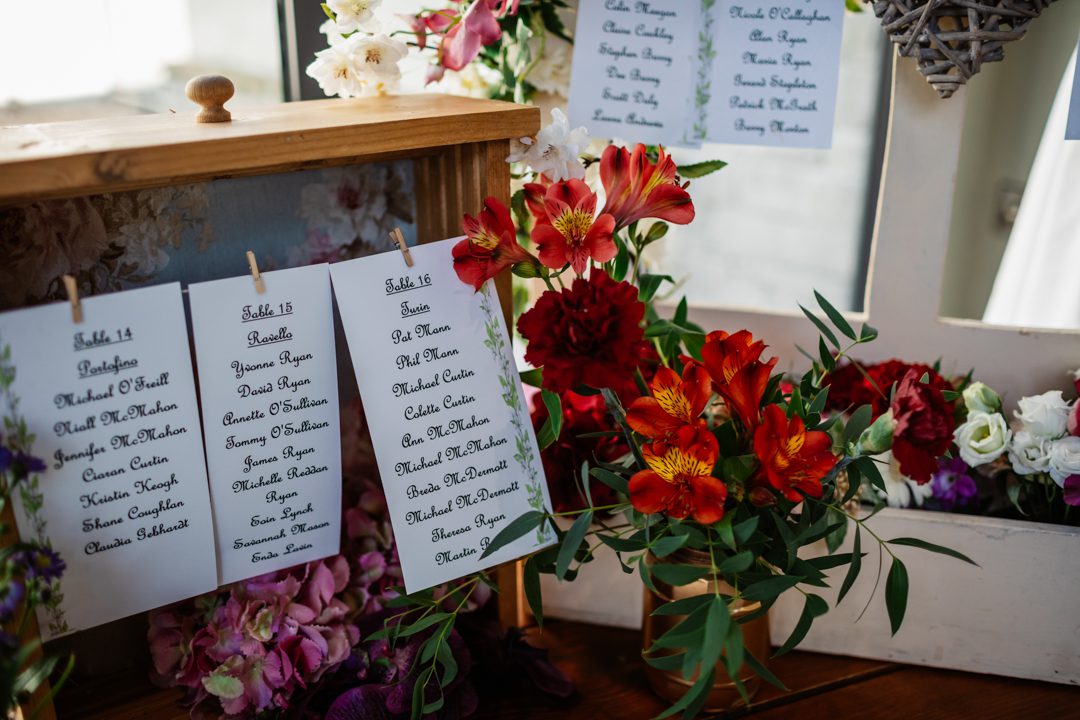 Colin Mangan
Claire Coakley
Stephen Benny
Dee Benny
Scott Daly
Leanne Andrews
Nicole O'Callaghan
Alan Ryan
Maria Ryan
Gerard Stapleton
Patrick McGrath
Barry Marton
Table 14
Portofino
Michael O'Freill
Niall McMahon
Jennifer McMahon
Ciaran Curtin
Kristin Keogh
Shane Coughlan
Claudia Gebhardt
Table 15
Ravello
Yvonne Ryan
David Ryan
Annette O'Sullivan
Tommy O'Sullivan
James Ryan
Michelle Reddan
Ryan
Eoin Lynch
Savannah Mason
Enda Lavin
Table 16
Turin
Pat Mann
Phil Mann
Michael Curtin
Colette Curtin
Ann McMahon
Michael McMahon
Breda McDermott
Michael McDermott
Theresa Ryan
Martin R